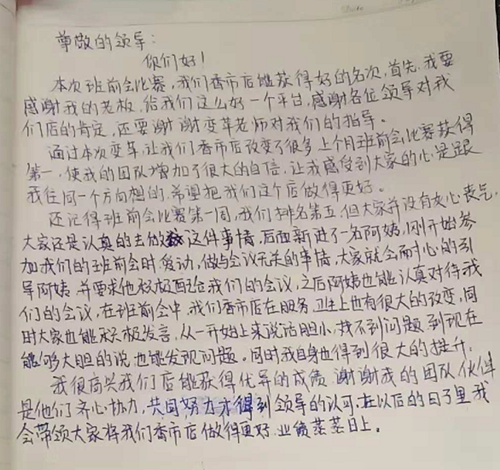 尊敬的领导：
你们好！
本次班前会比赛，我们香市店能获得好的名次，首先，我要
感谢我的老板，给我们这么好一个平台，感谢各位领导对我
们店的肯定，还要谢谢变革老师对我们的指导。
通过本次变革，让我们香市店改变了很多上个月班前会比赛获得
第一，使我的团队增加了很大的自信，让我感受到大家的心是跟
我在同一个方向想的，希望把我们这个店做得更好。
还记得班前会比赛第一周，我们排名第五，但大家并没有灰心丧气，
大家还是认真的去做这件事情，后面新进了一名阿姨，刚开始参
加我们的班前会时发动，做与会议无关的事情，大家就会耐心的引
导阿姨，并要求他积极配合我们的会议，之后阿姨也能认真对待我
们的会议，在班前会中，我们香市店在服务，卫生上也有很大的改变，同
时大家也能积极发言，从一开始上来说话胆小，找不到问题到现在
能够大胆的说也能发现问题。同时我自身也得到很大的提升。
我很高兴我们店能获得优异的成绩，谢谢我的团队伙伴
是他们齐心协力，共同努力才得到领导的认可，在以后的日子里我
会带领大家将我们香市店做得更好，业绩蒸蒸日上。